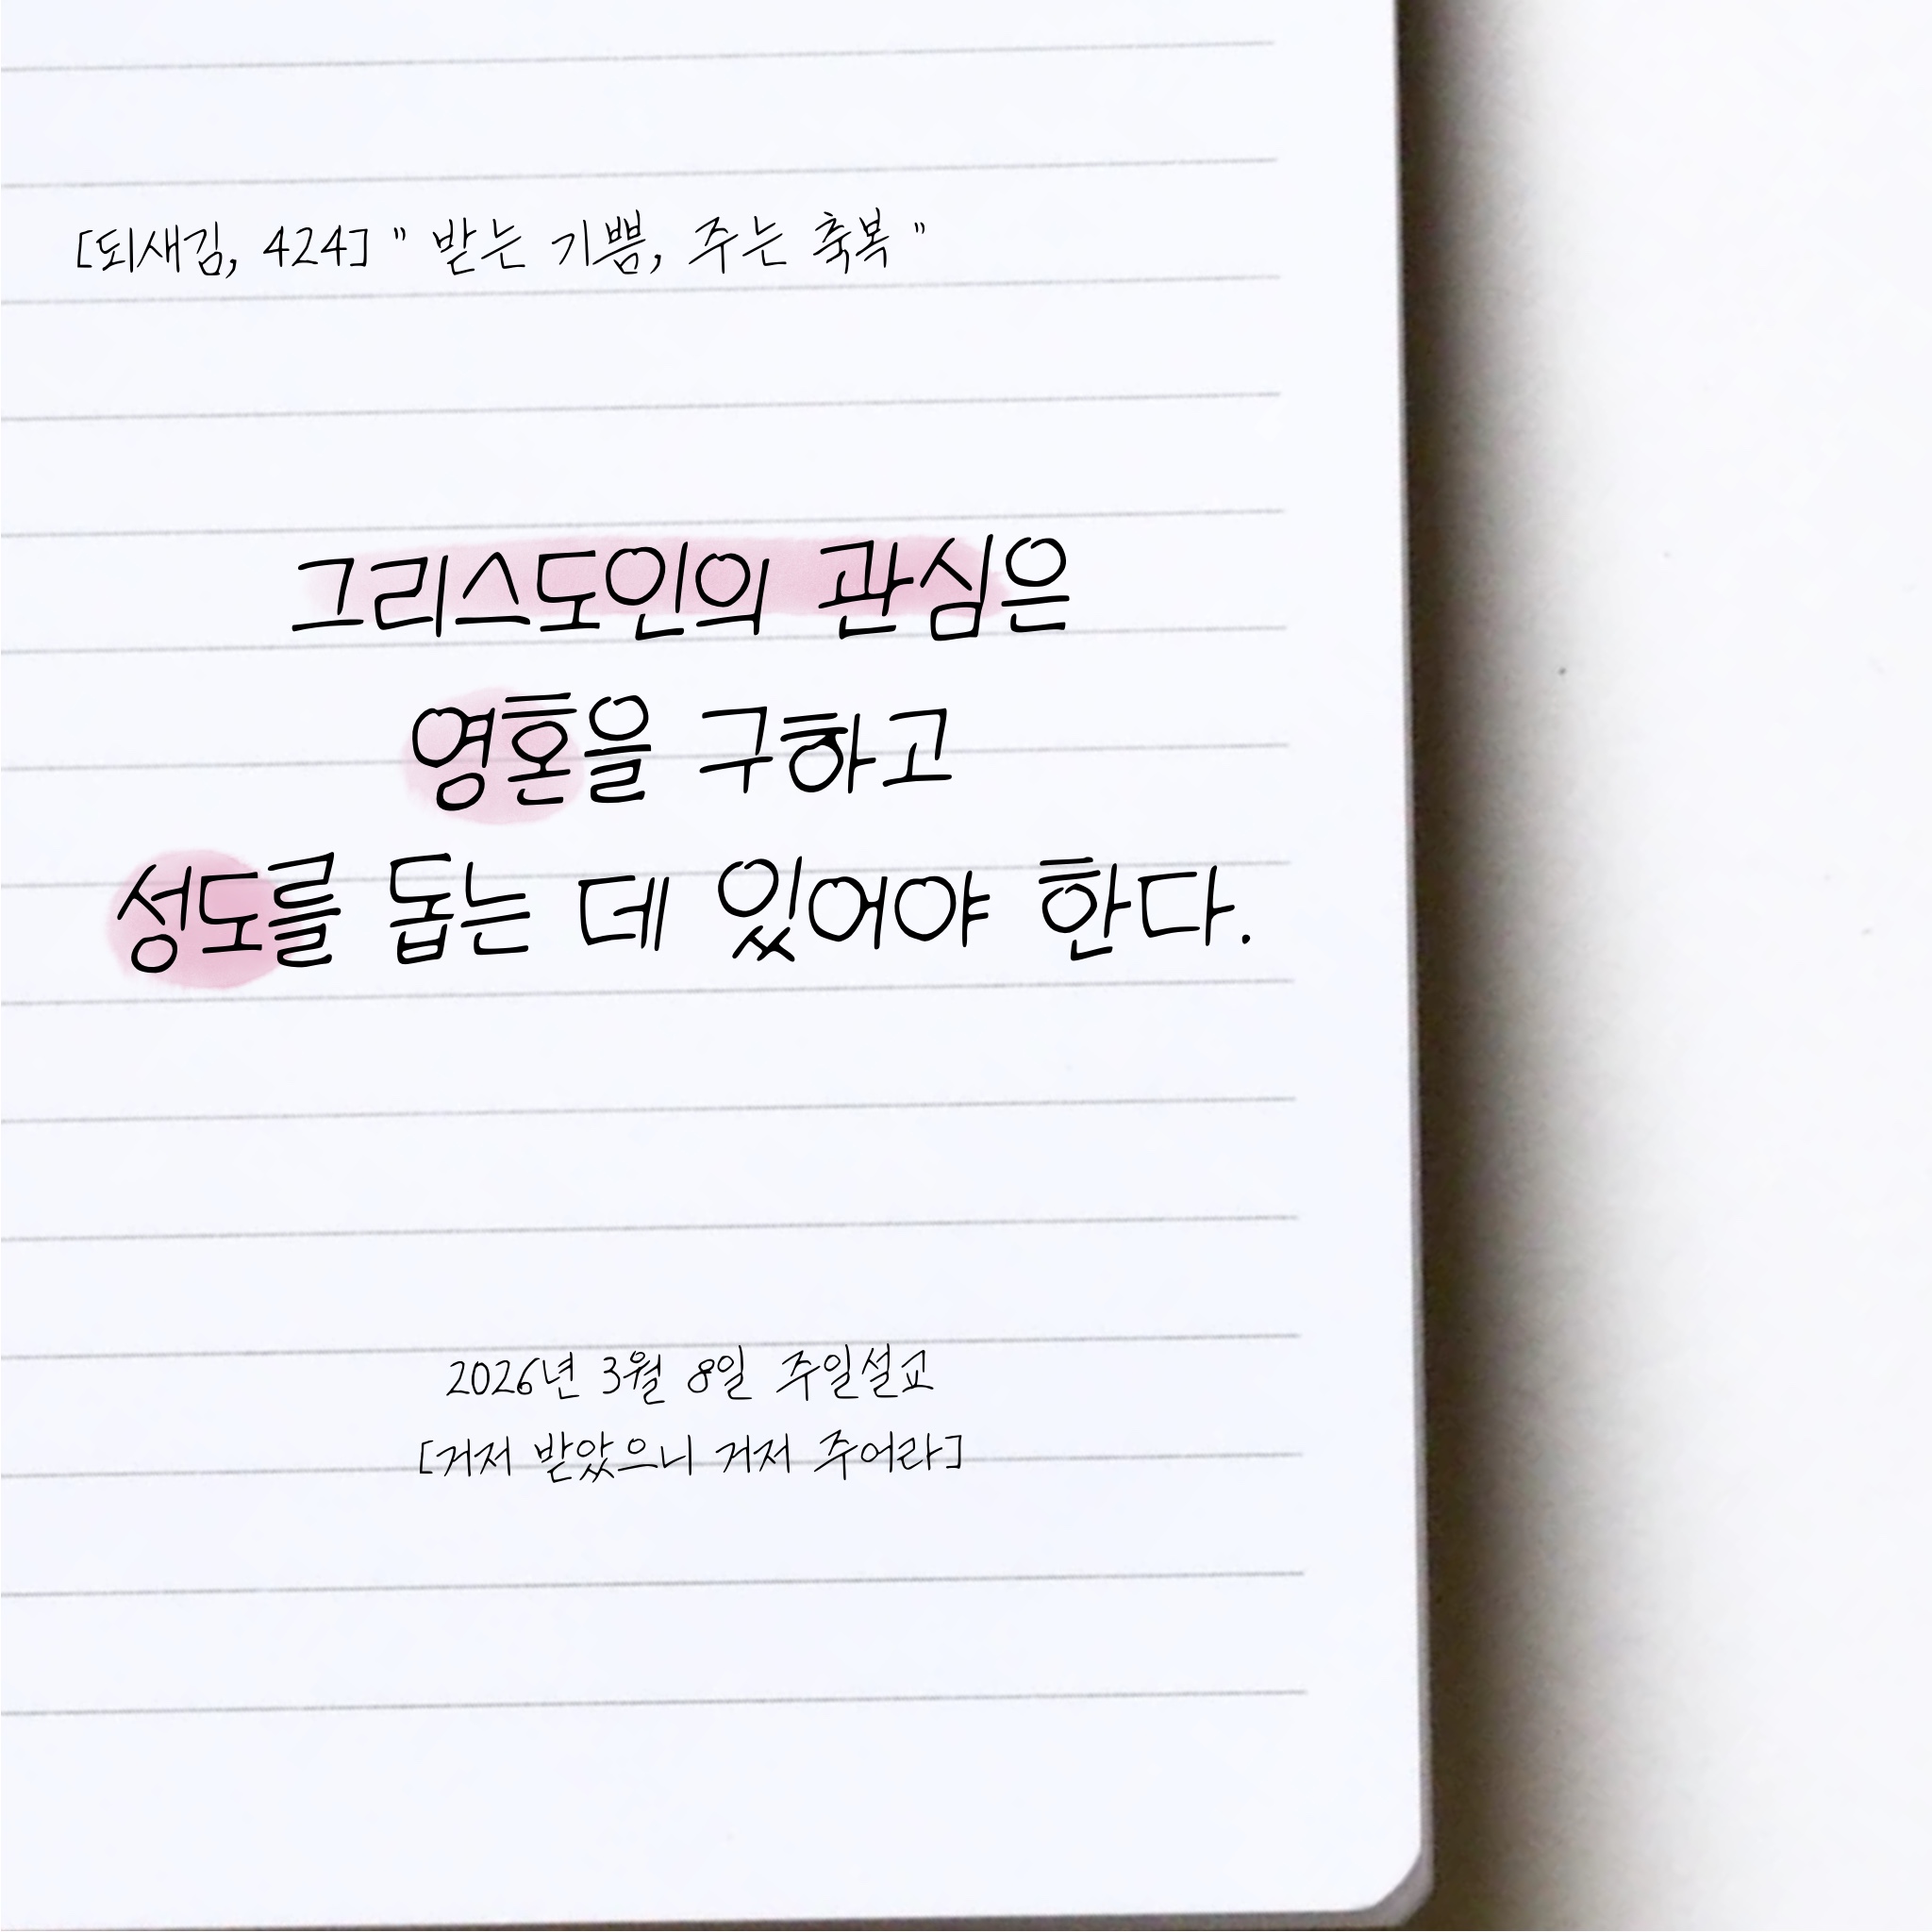 [되새김, 424] " 받는 기쁨, 주는 축복 "
그리스도인의 관심은
영혼을 구하고
성도를 돕는 데 있어야 한다.
2026년 3월 8일 주일설교
[거저 받았으니 거저 주어라]